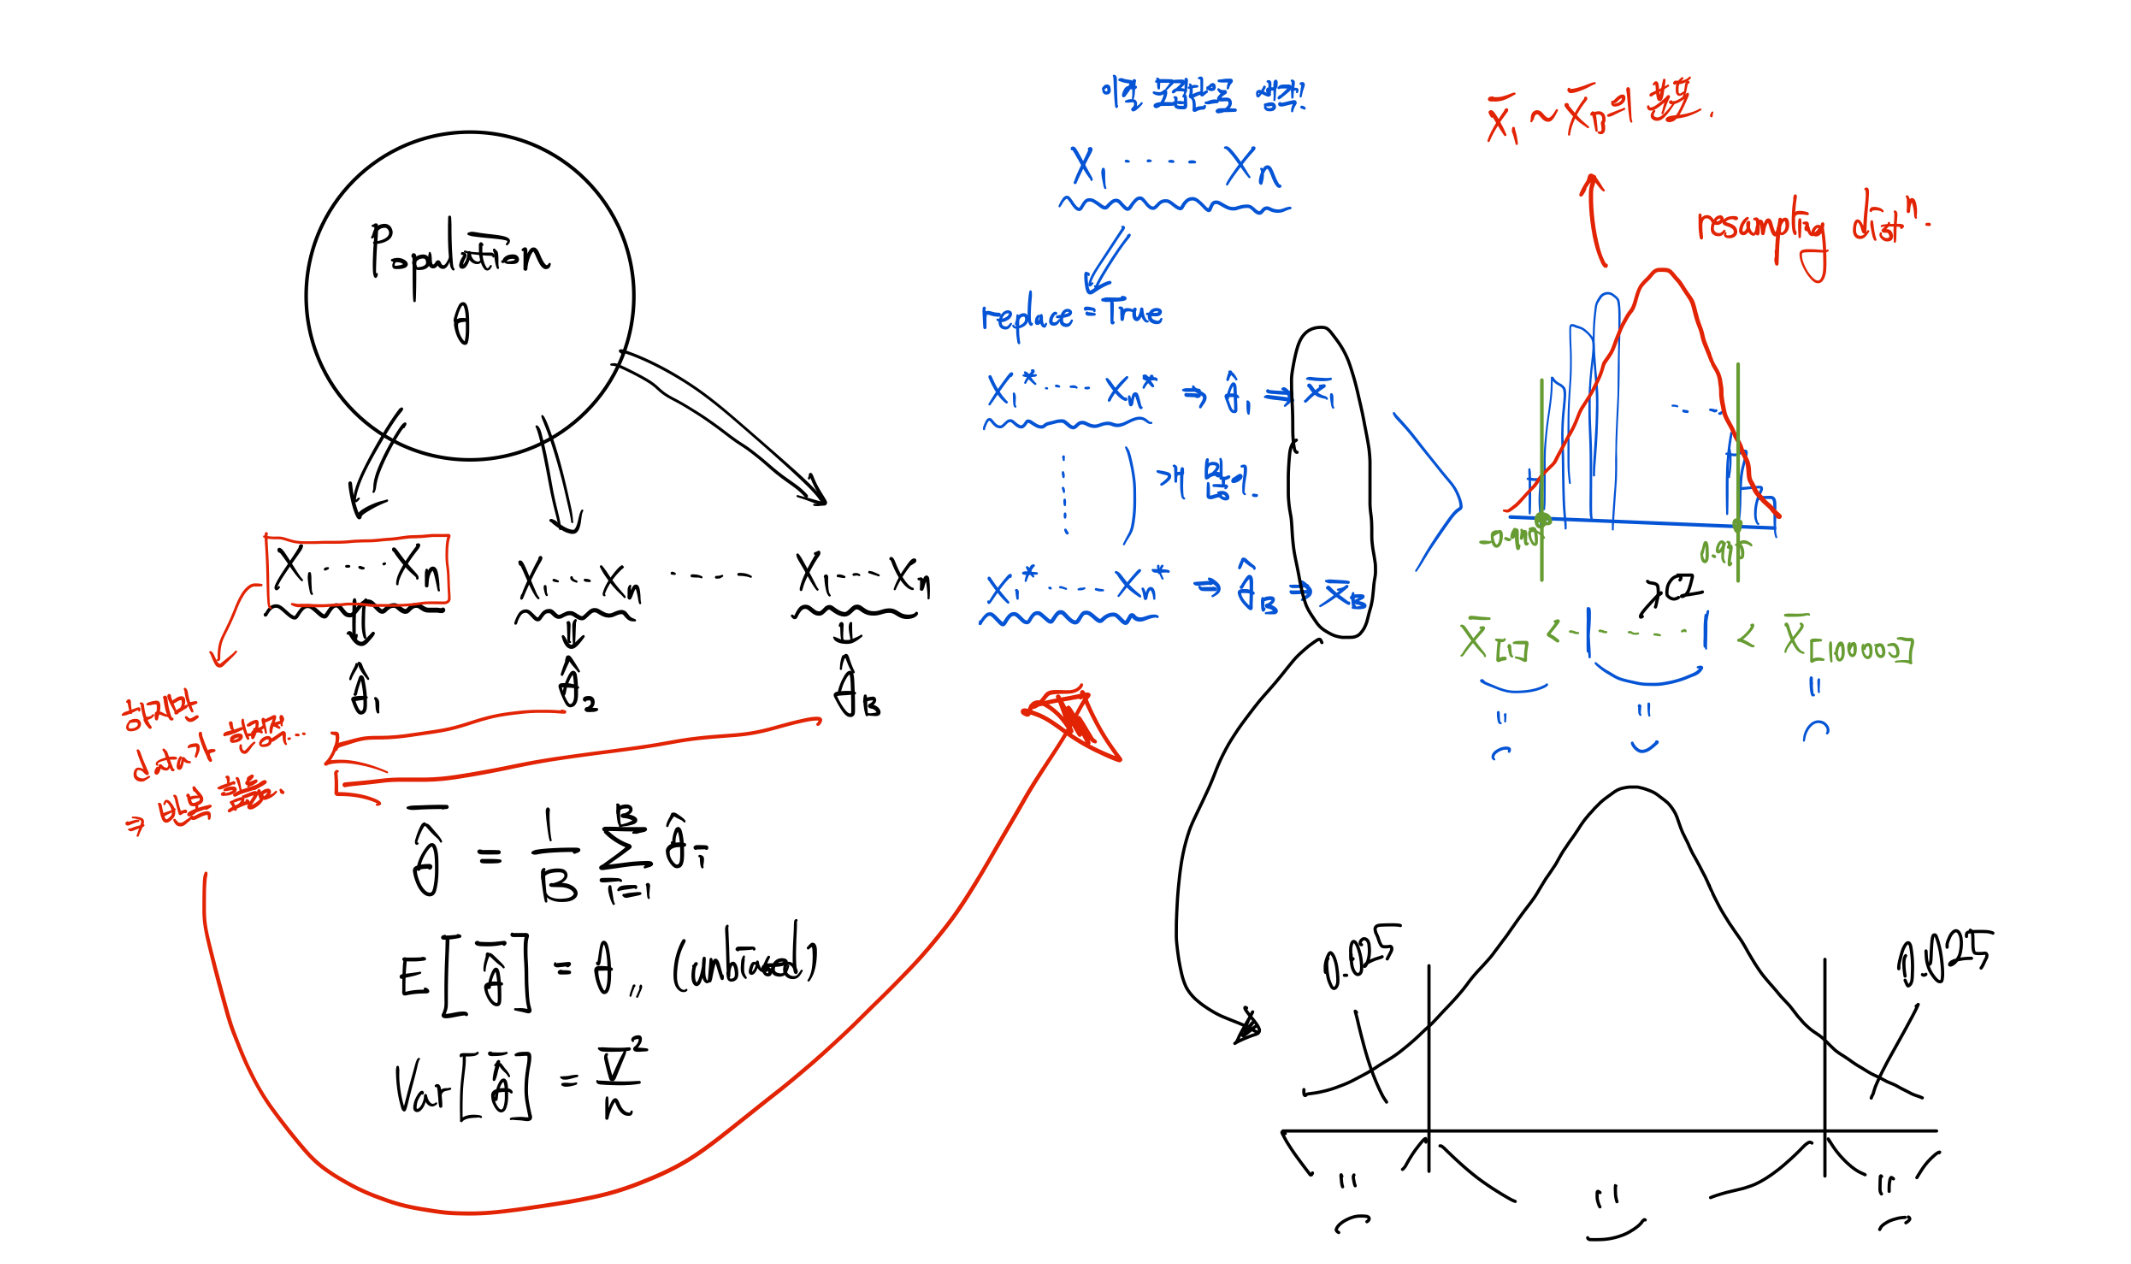 Population
θ
X₁ ····· Xₙ
X₁ ···· Xₙ
·····
X₁ ···· Xₙ
θ̂₁
θ̂₂
θ̂_B
하지만
data가 한정적...
⇒ 반복 힘듦.
\overline{θ̂} = 1/B Σ_{i=1}^{B} θ̂ᵢ
E[\overline{θ̂}] = θ,, (unbiased)
Var[\overline{θ̂}] = V²/n
이걸 모집단으로 생각!
X₁ ····· Xₙ
replace = True
X₁* ····· Xₙ* ⇒ θ̂₁ ⇒ X̄₁
개 많이.
X₁* ····· Xₙ* ⇒ θ̂_B ⇒ X̄_B
X̄₁ ~ X̄_B의 분포.
resampling distⁿ.
0.975
X̄[1] < ·· | ····· | < X̄[100000]
0.025
0.025